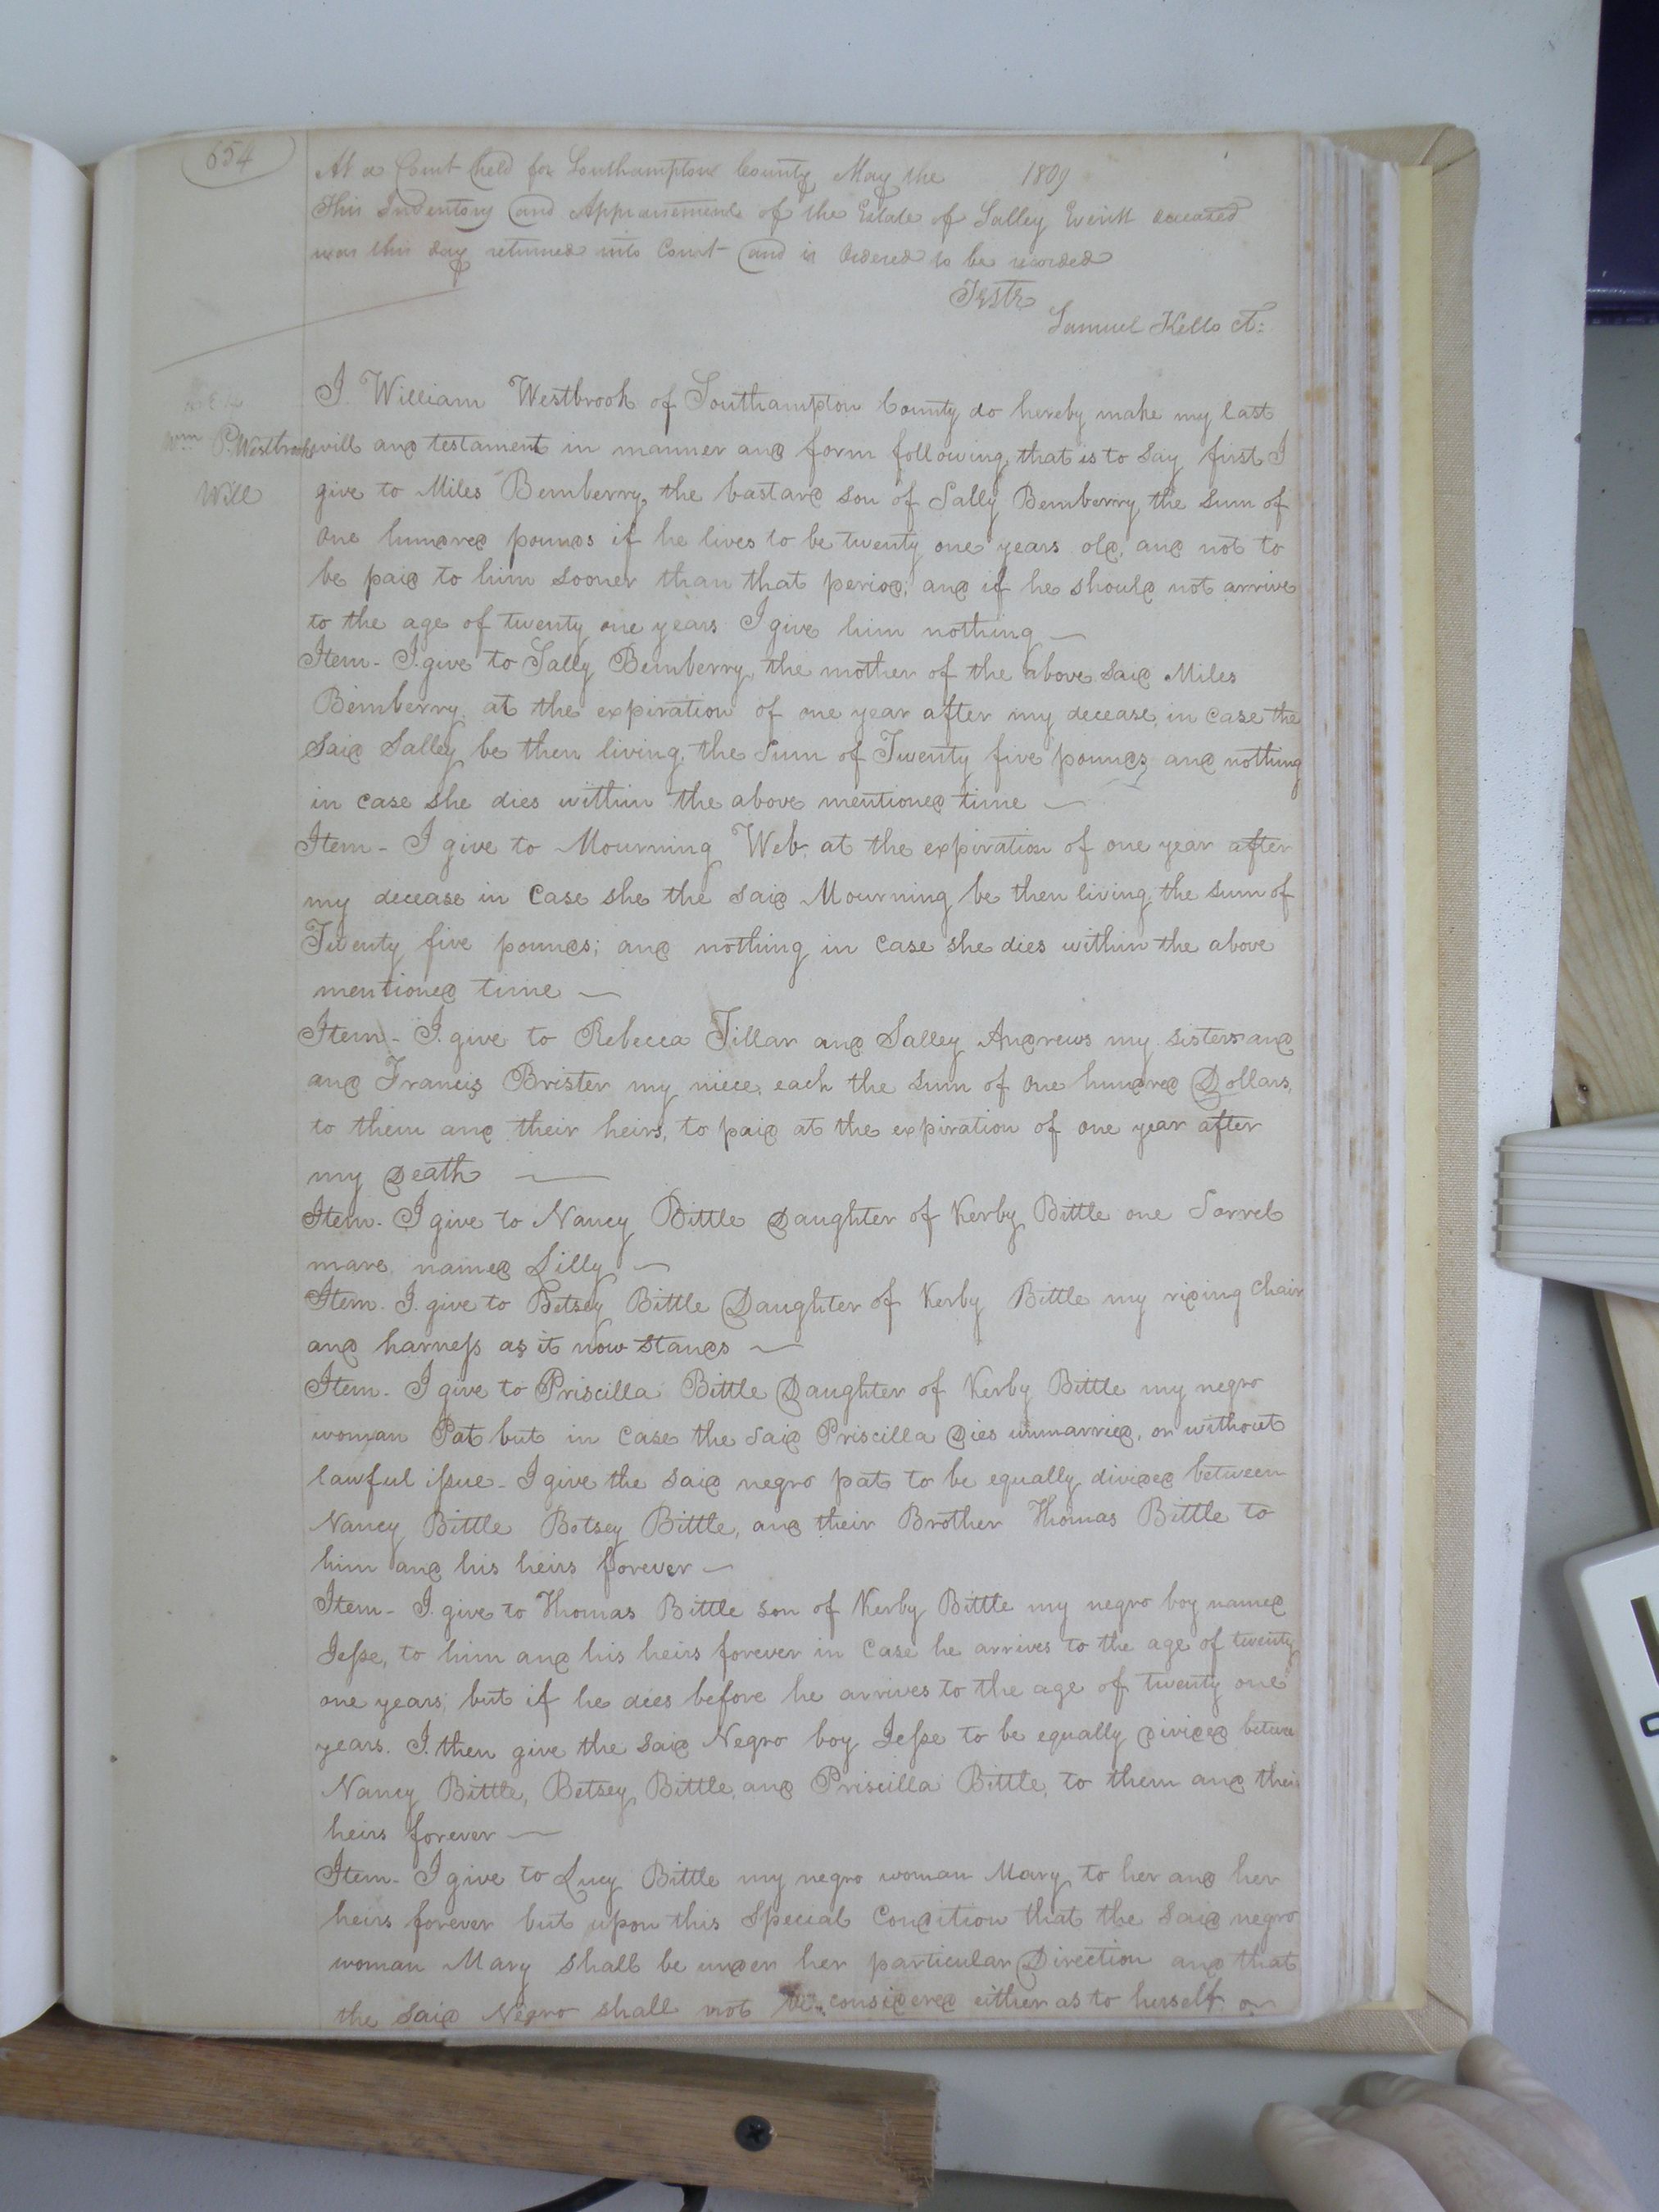 654
At a Court held for Southampton County May the 1809
This Inventory and Appraisement of the Estate of Salley Evritt deceased
was this day returned into Court and is Ordered to be recorded
Teste
Samuel Kello Ct:
I William Westbrook of Southampton County do hereby make my last
Wm P. Westbrook
will and testament in manner and form following, that is to say first I
Will
give to Miles Bemberry, the bastard son of Sally Bemberry the sum of
One hundred pounds if he lives to be twenty one years old, and not to
be paid to him sooner than that period; and if he should not arrive
to the age of twenty one years I give him nothing —
Item - I give to Sally Bemberry, the mother of the above said Miles
Bemberry, at the expiration of one year after my decease, in case the
said Salley be then living, the Sum of Twenty five pounds and nothing
in case she dies within the above mentioned time —
Item - I give to Mourning Web, at the expiration of one year after
my decease in case she the said Mourning be then living, the sum of
Twenty five pounds; and nothing in case she dies within the above
mentioned time —
Item - I give to Rebecca Tillar and Salley Andrews my sisters and
and Francis Brister my niece, each the sum of One hundred Dollars,
to them and their heirs, to paid at the expiration of one year after
my Death —
Item - I give to Nancy Bittle Daughter of Kerby Bittle one Sorrel
mare named Lilly —
Item. I give to Betsey Bittle Daughter of Kerby Bittle my riding Chair
and harneſs as it now stands —
Item - I give to Priscilla Bittle Daughter of Kerby Bittle my negro
woman Pat but in case the said Priscilla Dies unmarried, or without
lawful iſsue - I give the said negro pat to be equally divided between
Nancy Bittle Betsey Bittle, and their Brother Thomas Bittle to
him and his heirs forever —
Item - I give to Thomas Bittle son of Kerby Bittle my negro boy named
Jeſse, to him and his heirs forever in case he arrives to the age of twenty
one years; but if he dies before he arrives to the age of twenty one
years. I then give the said Negro boy Jeſse to be equally divided betwe
Nancy Bittle, Betsey Bittle, and Priscilla Bittle, to them and their
heirs forever —
Item - I give to Lucy Bittle my negro woman Mary, to her and her
heirs forever but upon this Special Condition that the said negro
woman Mary shall be under her particular Direction and that
the said Negro shall not be considered either as to herself or